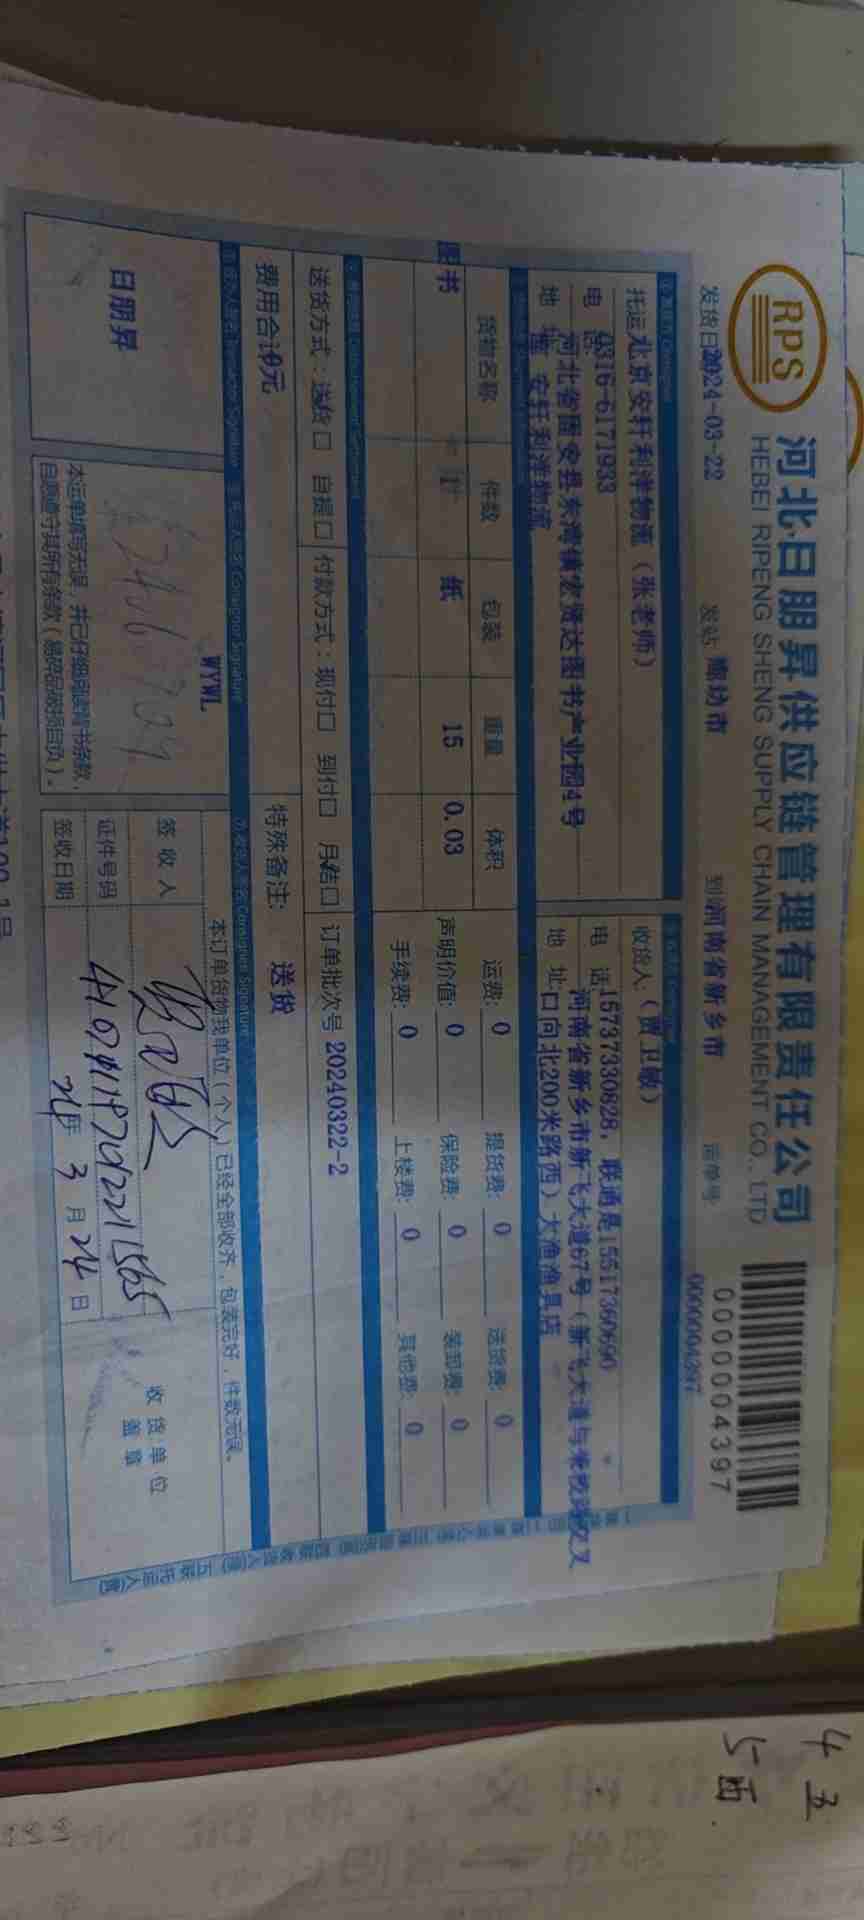 RPS
河北日朋昇供应链管理有限责任公司
HEBEI RIPENG SHENG SUPPLY CHAIN MANAGEMENT CO., LTD
0000004397
发货日 2024-03-22 发站 廊坊市 到站 河南省新乡市 运单号: 0000004397
托运 北京安轩利洋物流（张老师）
电 话 0316-6171933
河北省固安县东湾镇宏贤达图书产业园4号
地 址 安轩利洋物流
收货人:（贾卫敏）
电 话: 15737330828，联通是15517360690
河南省新乡市新飞大道67号（新飞大道与荣校路交叉
地 址: 口向北200米路西）大渔渔具店
货物名称 件数 包装 重量 体积
图书 1 纸 15 0.03
运费: 0 提货费: 0 送货费: 0
声明价值: 0 保险费: 0 装卸费: 0
手续费: 0 上楼费: 0 其他费: 0
送货方式：送货□ 自提□ 付款方式：现付□ 到付□ 月结□ 订单批次号 20240322-2
费用合计 0元 特殊备注: 送货
日朋昇
WYWL
本运单填写无误，并已仔细阅读背书条款，
自愿遵守其所有条款（易碎品破损自负）。
本订单货物我单位（个人）已经全部收齐，包装完好，件数无误。
签收人
证件号码
签收日期 24年 3月 24日
收货单位
盖章
4 五
5 面